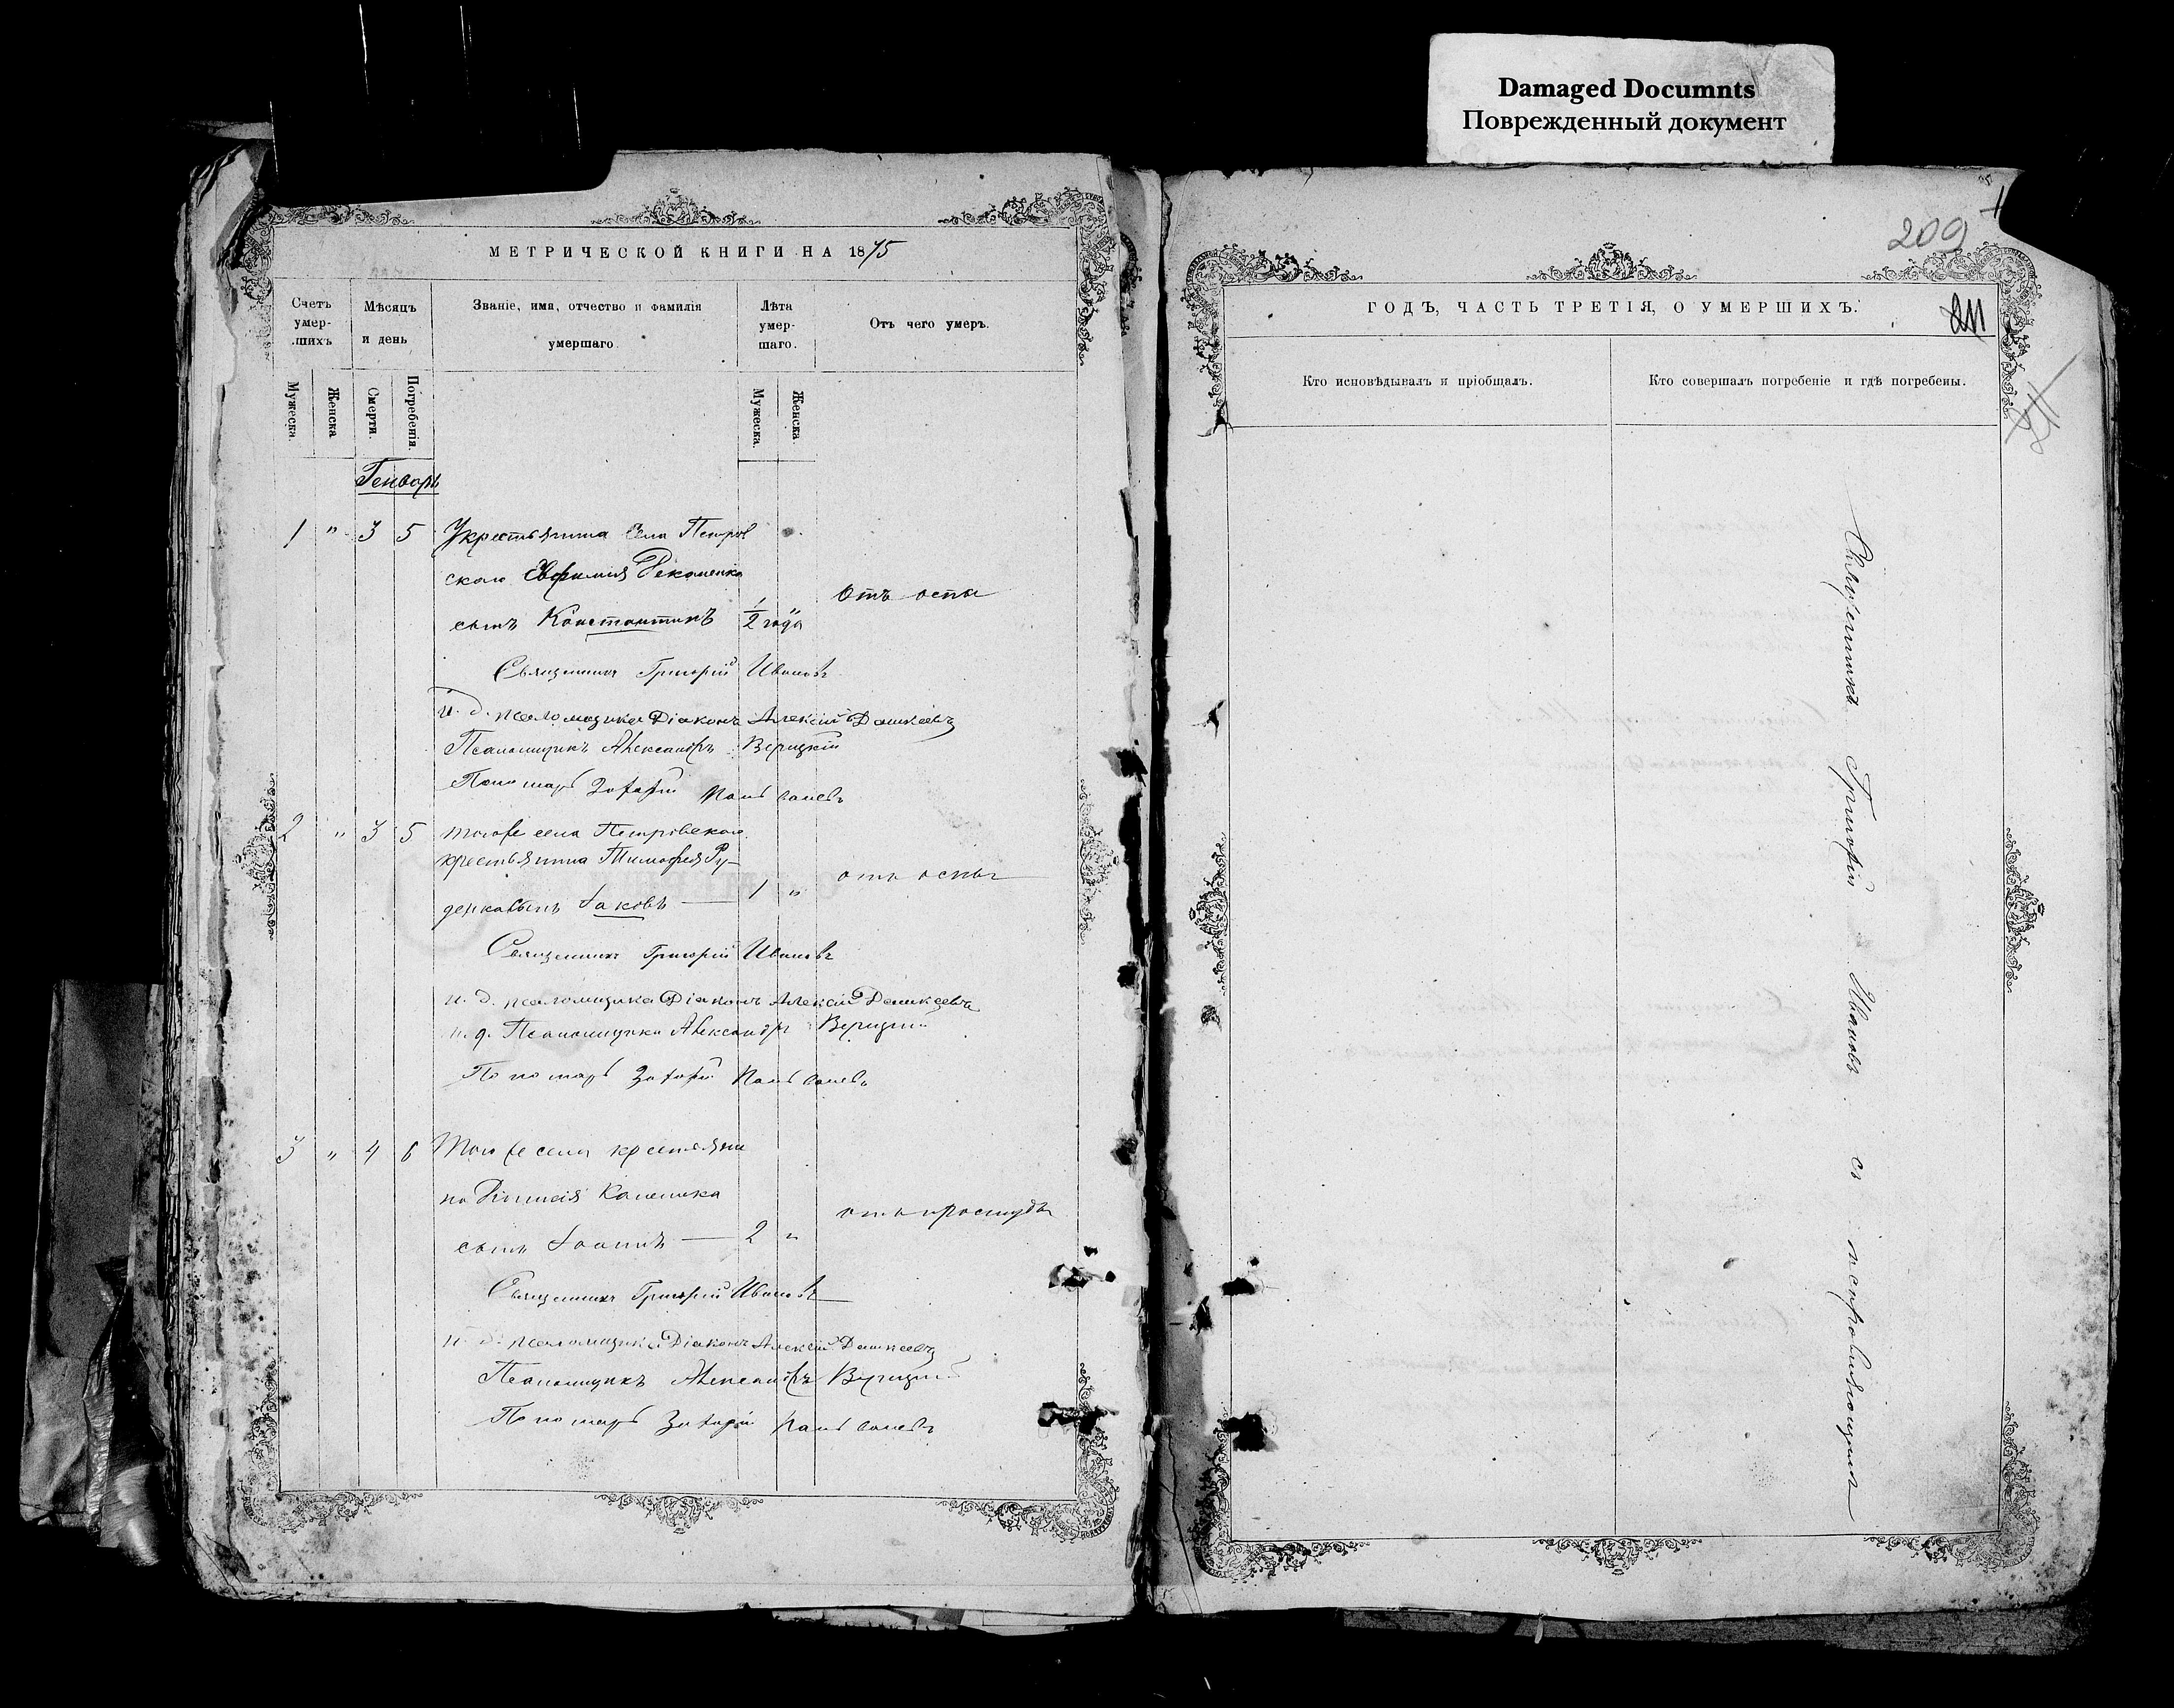 Damaged Documnts
Поврежденный документ
МЕТРИЧЕСКОЙ КНИГИ НА 1875
Счетъ умер-шихъ
Мѣсяцъ и день
Званіе, имя, отчество и фамилія умершаго.
Лѣта умер-шаго.
Отъ чего умеръ.
Мужеска.
Женска
Смерти.
Погребенія.
Мужеска.
Женска.
Генварь
1 " 3 5 Укрестьянина села Петров
скаго Евфимія
сынъ Константинъ 1/2 года
отъ оспы
Священникъ Григорій Ивановъ
и. д. псаломщика Діаконъ Алексій Дашкеевъ
Псаломщикъ Александръ Верицкій
Пономарь Захарій
2 " 3 5 тогоже села Петровскаго
крестьянина Тимофея Ру-
денка сынъ Іаковъ — 1 "
отъ оспы
Священникъ Григорій Ивановъ
и. д. псаломщика Діаконъ Алексій Дашкеевъ
и. д. Псаломщика Александръ Верицкій
Пономарь Захарій
3 " 4 6 Тогоже села крестьяни
на
сынъ Іоаннъ — 2 "
отъ простуды
Священникъ Григорій Ивановъ
и. д. псаломщика Діаконъ Алексій Дашкеевъ
Псаломщикъ Александръ Верицкій
Пономарь Захарій
209
ГОДЪ, ЧАСТЬ ТРЕТІЯ, О УМЕРШИХЪ.
211
Кто исповѣдывалъ и пріобщалъ.
Кто совершалъ погребеніе и гдѣ погребены.
Священникъ Григорій Ивановъ